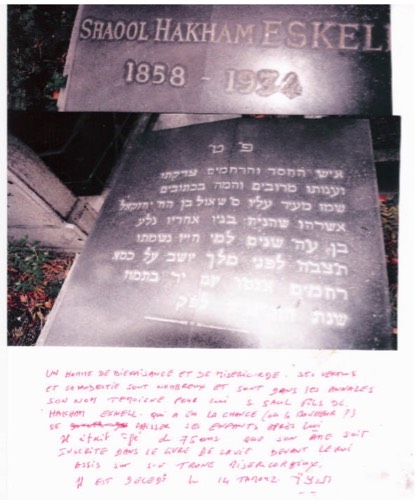 SHAOOL HAKHAM ESKELL
1858 - 1934
פ ט
איש החסד והרחמים צדקתו
וענותו מרובים והמה בכתובים
שמו מעיד עליו ס שאול בן הח יחזקאל
אשרהו שהניח בניו אחריו גלע
בן עה שנים למי חייו נשמתו
לפני מלך יושב על כסא
רחמים יום יד בתמוז
שנת לפק
UN HOMME DE BIENFAISANCE ET DE MISERICORDE. SES VERTUS
ET SA MODESTIE SONT NOMBREUX ET SONT DANS LES ANNALES
SON NOM TEMOIGNE POUR LUI S SAUL FILS DE
HAKHAM ESKELL. QUI A EU LA CHANCE (OU LE BONHEUR ?)
DE LAISSER SES ENFANTS APRES LUI
IL ETAIT AGÉ DE 75 ANS QUE SON ÂME SOIT
INSCRITE DANS LE LIVRE DE LA VIE DEVANT LE ROI
ASSIS SUR SON TRONE MISERICORDIEUX.
IL EST DECEDÉ LE 14 TAMOUZ